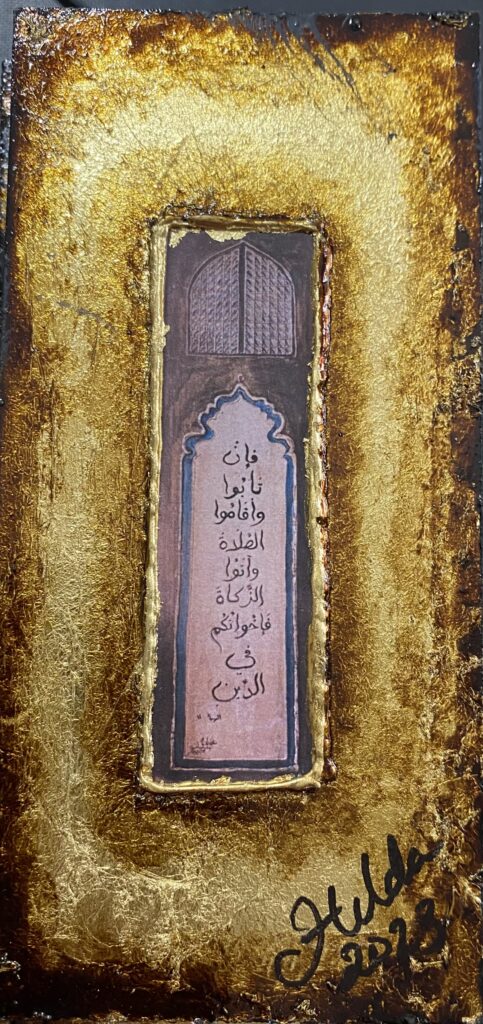 فإن
تَابُوا
وأقامُوا
الصَّلاةَ
وآتَوْا
الزَّكاةَ
فَإخْوانُكُم
في
الدّين
Hilda
2023